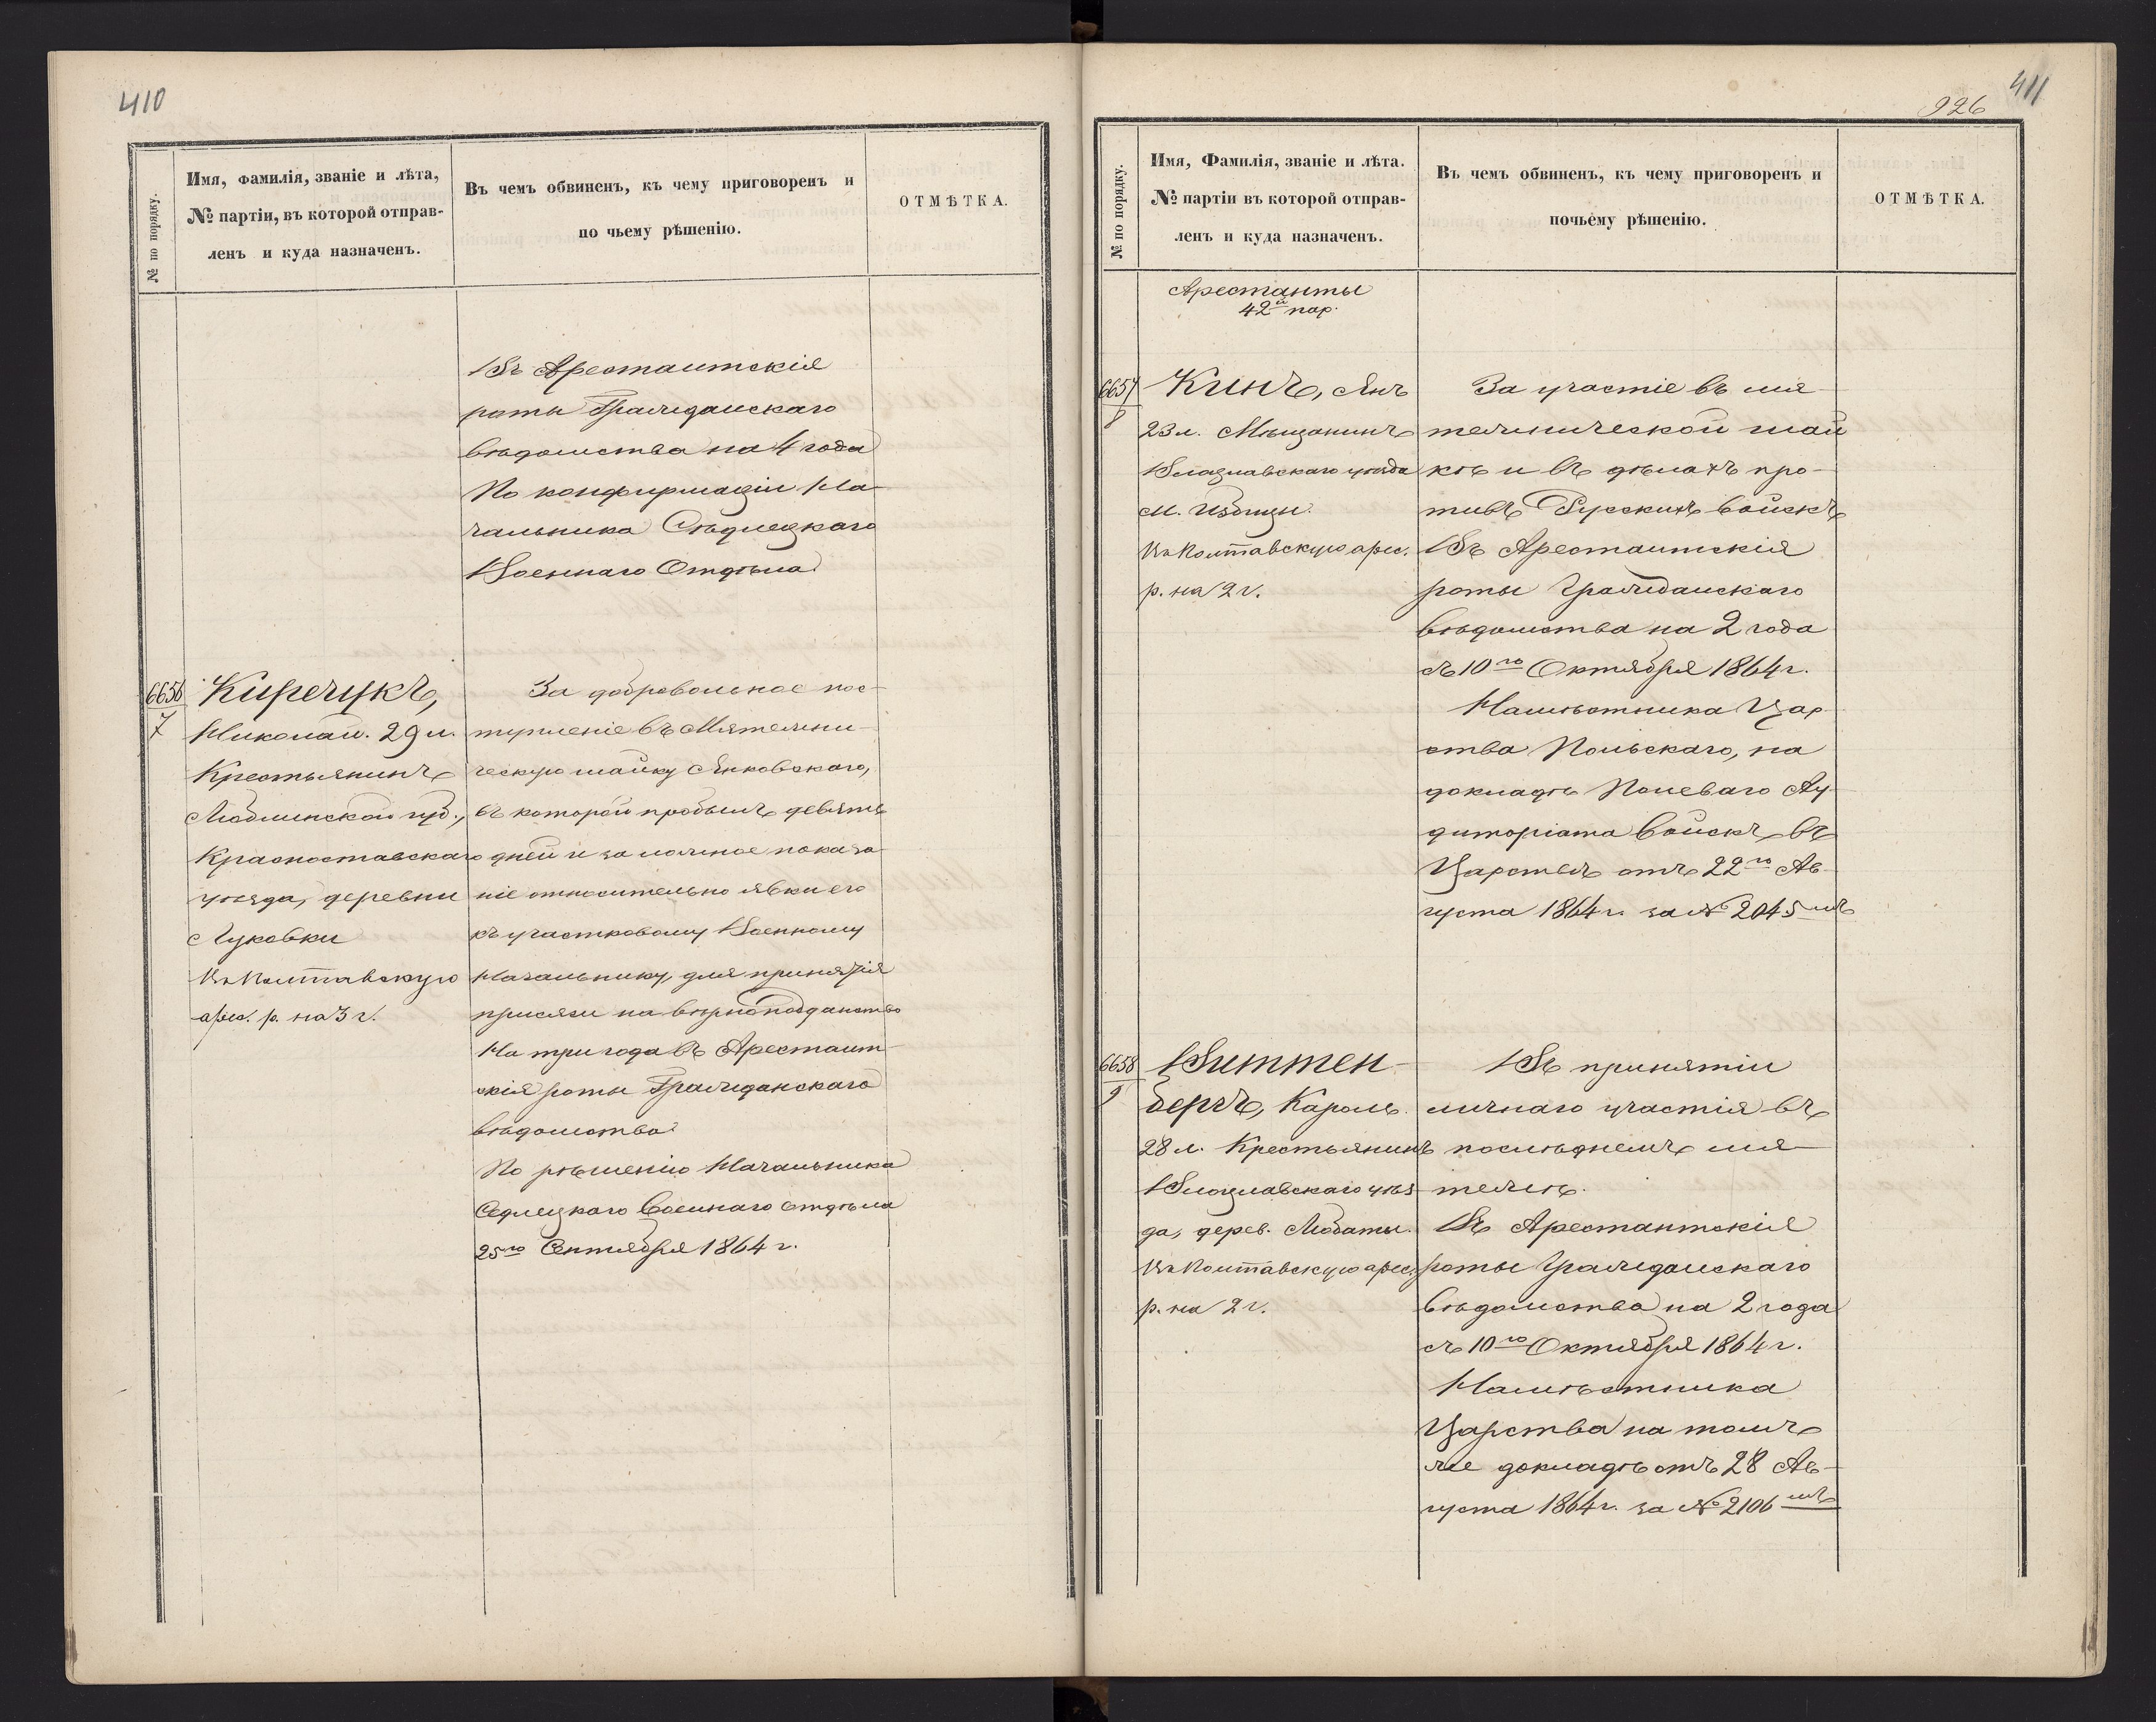 410
№ по порядку.
Имя, фамилія, званіе и лѣта,
№ партіи, въ которой отправ-
ленъ и куда назначенъ.
Въ чемъ обвиненъ, къ чему приговоренъ и
по чьему рѣшенію.
ОТМѢТКА.
Въ Арестантскія
роты Гражданскаго
вѣдомства на 4 года
По конфирмаціи На-
чальника Сѣдлецкаго
Военнаго Отдѣла.
6656
7
Киречукъ,
Николай. 29 л.
Крестьянинъ
Люблинской губ.,
Красноставскаго
уѣзда, деревни
Луковки
Въ Полтавскую
арес. р. на 3 г.
За добровольное пос-
тупленіе въ Мятежни-
ческую шайку Янковскаго,
въ которой пробылъ девять
дней и за ложное показа-
ніе относительно явки его
къ участковому Военному
Начальнику, для принятія
присяги на вѣрноподданство
На три года въ Арестант-
скія роты Гражданскаго
вѣдомства.
По рѣшенію Начальника
Седлецкаго Военнаго отдѣла
25го Сентября 1864 г.
411
926
№ по порядку.
Имя, Фамилія, званіе и лѣта.
№ партіи въ которой отправ-
ленъ и куда назначенъ.
Въ чемъ обвиненъ, къ чему приговоренъ и
почьему рѣшенію.
ОТМѢТКА.
Арестанты
42й пар.
6657
8
Кинъ, Янъ
23 л. Мѣщанинъ
Влоцлавскаго уѣзда
м. Избицы.
Въ Полтавскую арес.
р. на 2 г.
За участіе въ мя-
тежнической шай
кѣ и въ дѣлахъ про-
тивъ Русскихъ войскъ
Въ Арестантскія
роты Гражданскаго
вѣдомства на 2 года
съ 10го Октября 1864 г.
Намѣстника Цар-
ства Польскаго, на
докладѣ Полеваго Ау-
диторіата войскъ въ
Царствѣ отъ 22го Ав-
густа 1864 г. за № 2045мъ
6658
9
Виттен-
бергъ, Кароль.
28 л. Крестьянинъ
Влоцлавскаго уѣз
да, дерев. Любаты.
Въ Полтавскую арес.
р. на 2 г.
Въ принятіи
личнаго участія въ
послѣднемъ мя-
тежѣ.
Въ Арестантскія
роты Гражданскаго
вѣдомства на 2 года
съ 10го Октября 1864 г.
Намѣстника
Царства на томъ
же докладѣ отъ 28 Ав-
густа 1864 г. за № 2106мъ